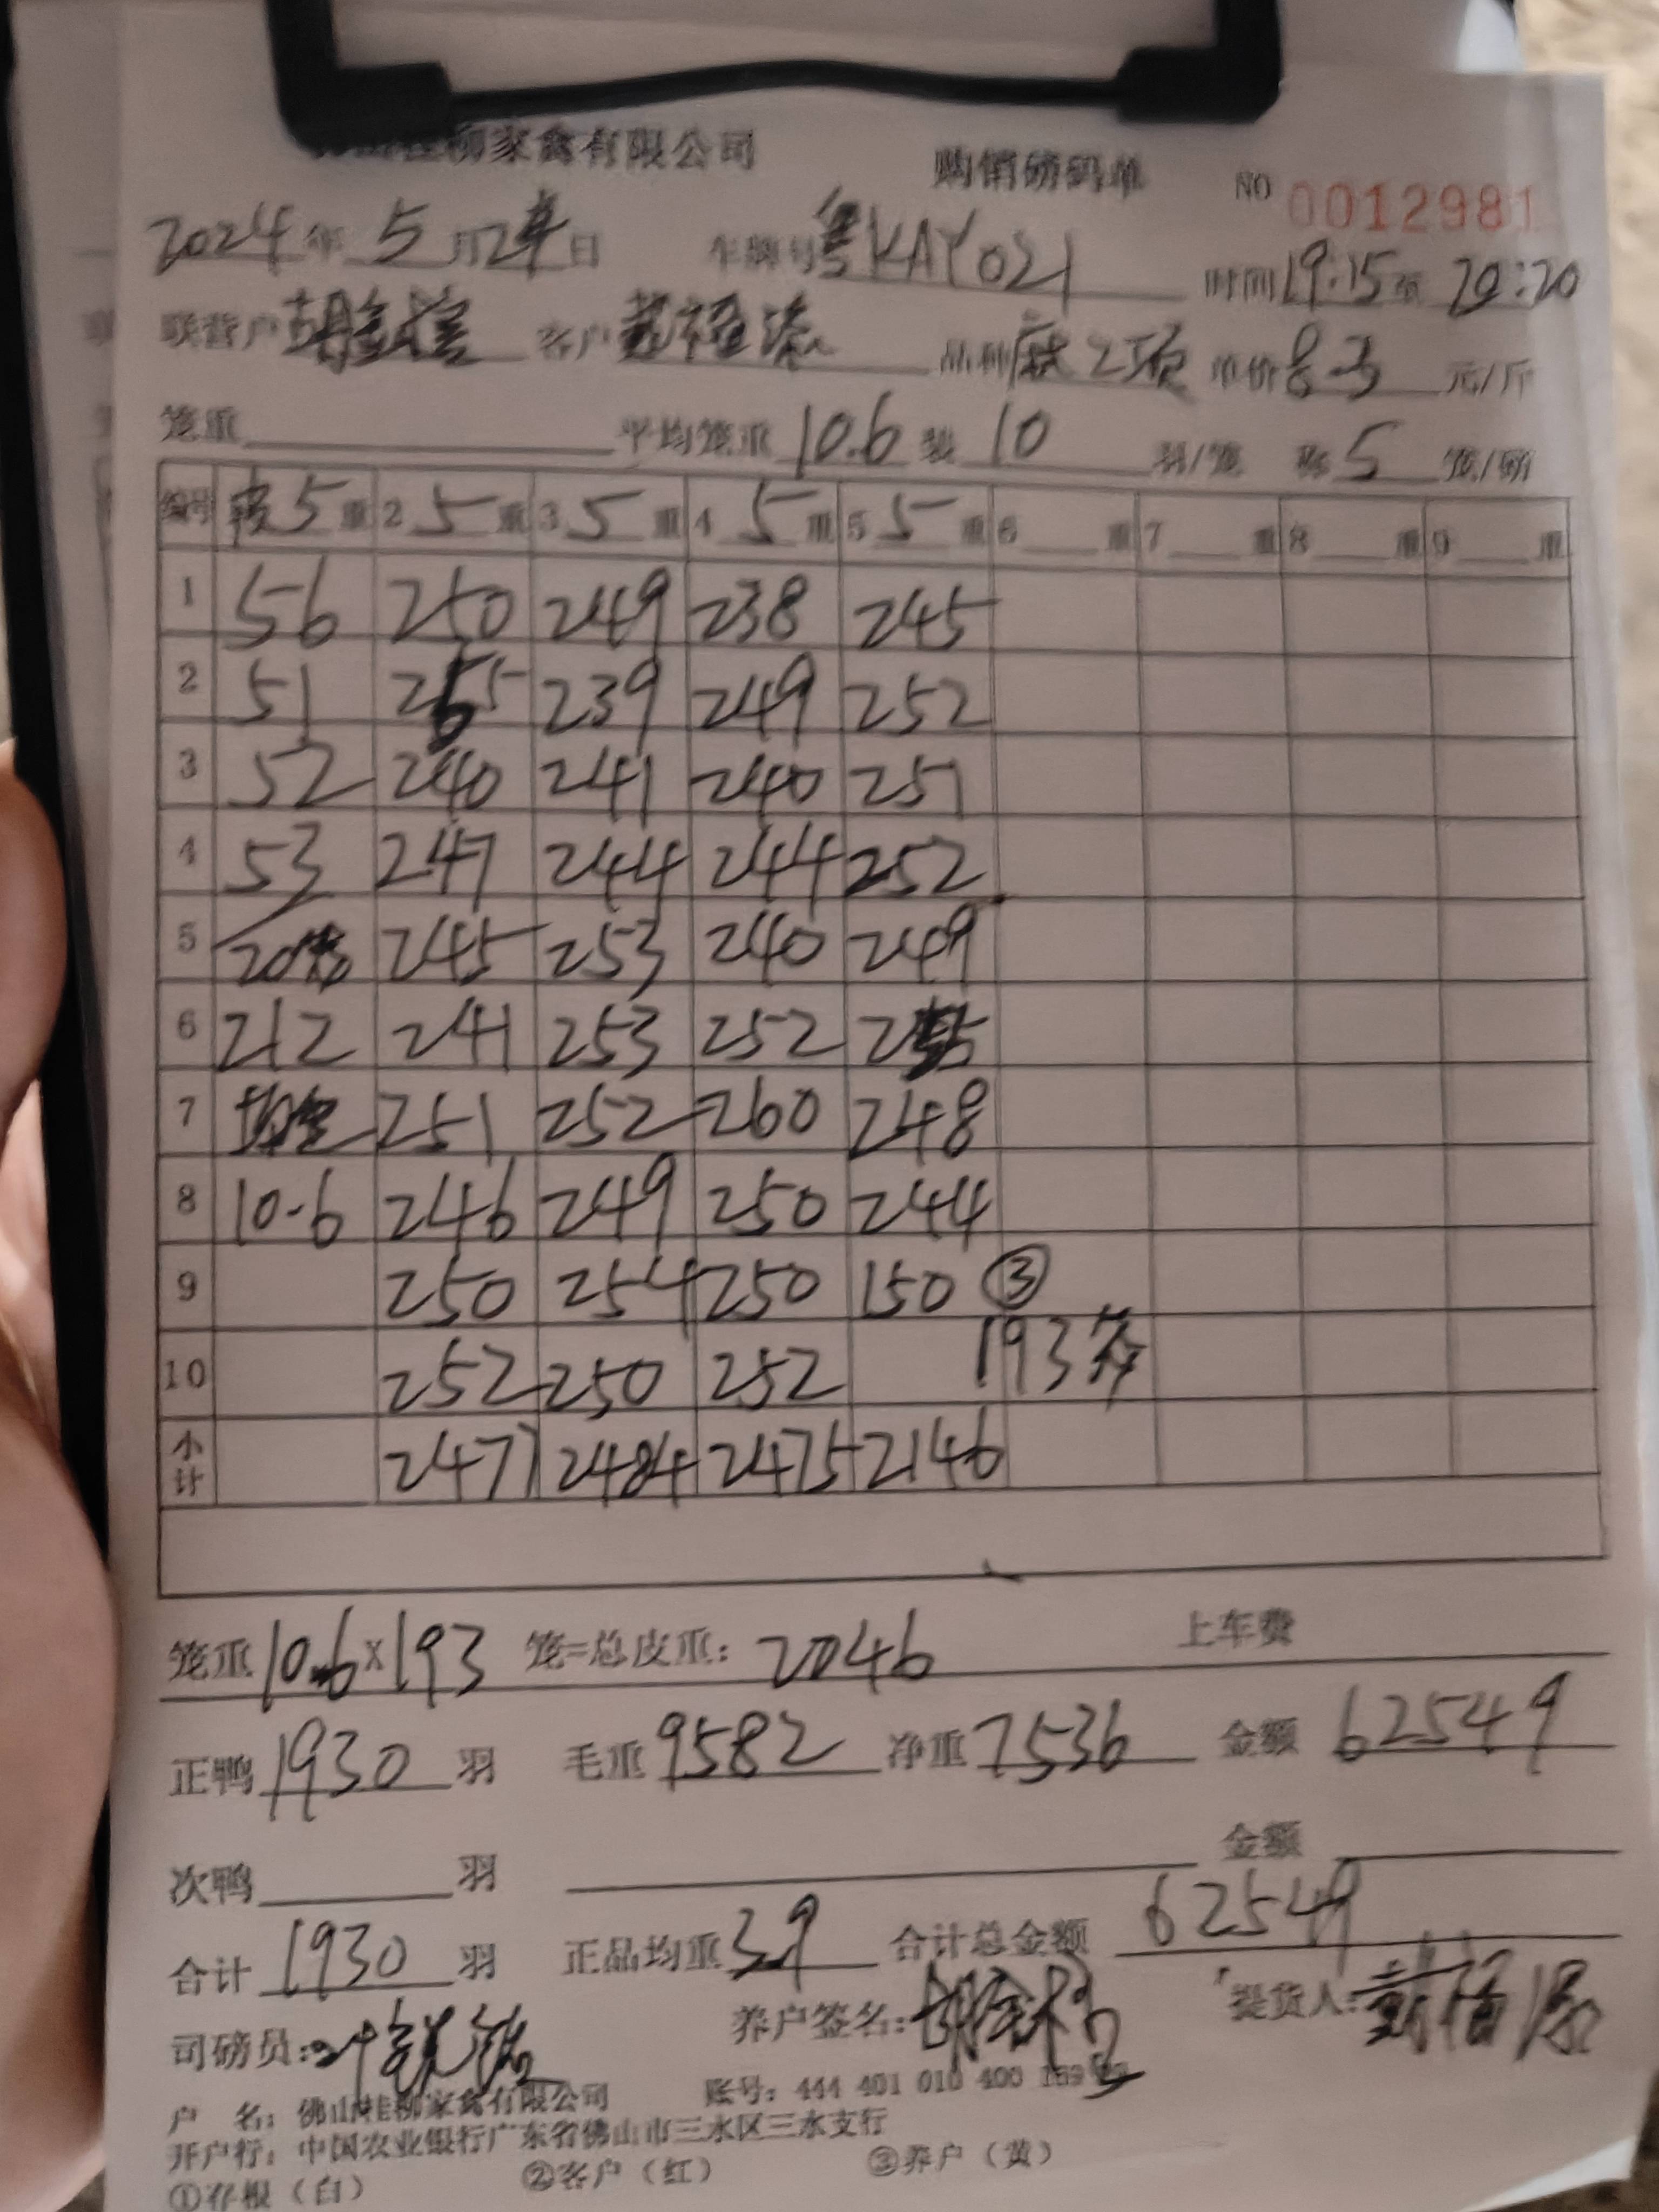 佛山桂柳家禽有限公司 购销磅码单 NO 0012981
2024年 5月24日 车牌号 粤KAY021 时间 19:15至 20:20
联营户 客户 品种 单价 8.3 元/斤
笼重 平均笼重 10.6 装 10 羽/笼 称 5 笼/磅
编号 5重 2 5重 3 5重 4 5重 5 5重 6 重 7 重 8 重 9 重
1 56 250 249 238 245
2 51 239 249 252
3 52 240 241 240 251
4 53 247 244 244 252
5 245 253 240 249
6 212 241 253 252
7 251 252 260 248
8 10.6 246 249 250 244
9 250 254 250 150 ③
10 252 250 252 193笼
小计 2477 2484 2475 2146
笼重 10.6×193 笼=总皮重: 2046 上车费
正鸭 1930 羽 毛重 9582 净重 7536 金额 62549
次鸭 羽 金额
合计 1930 羽 正品均重 3.9 合计总金额 62549
司磅员: 养户签名: 提货人:
户 名: 佛山桂柳家禽有限公司 账号: 444 401 010 400 159
开户行: 中国农业银行广东省佛山市三水区三水支行
①存根（白） ②客户（红） ③养户（黄）